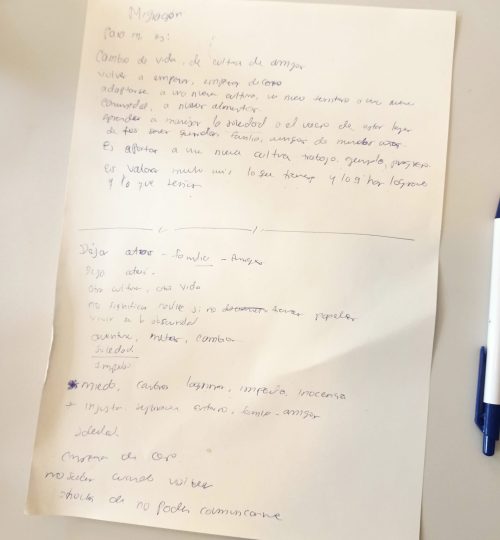 Migración
Para mi es:
Cambio de vida, de cultura de amigos
volver a empezar, empezar de cero
adaptarse a una nueva cultura, un nuevo territorio a una nueva
comunidad, a nuevos alimentos.
aprender a manejar la soledad o el vacio de estar lejos
de tus seres queridos familia, amigos de
Es aportar a una nueva cultura trabajo, ejemplo, progreso.
es valorar mucho más lo que tienes y lo q' has logrado
y lo que tenias
Dejar atras - familia - Amigos
Dejo atras -
otra cultura, otra vida
no significa nadie si no tienes papeles
vivir en la obscuridad
aventura, metas, cambios
Soledad
Impulso
* miedo, cambio lagrimas, impacto, inocencia
+ injusti. separacion entorno, familia - amigos
Soledad
empezar de cero
no saber cuando volver
de no poder comunicarme